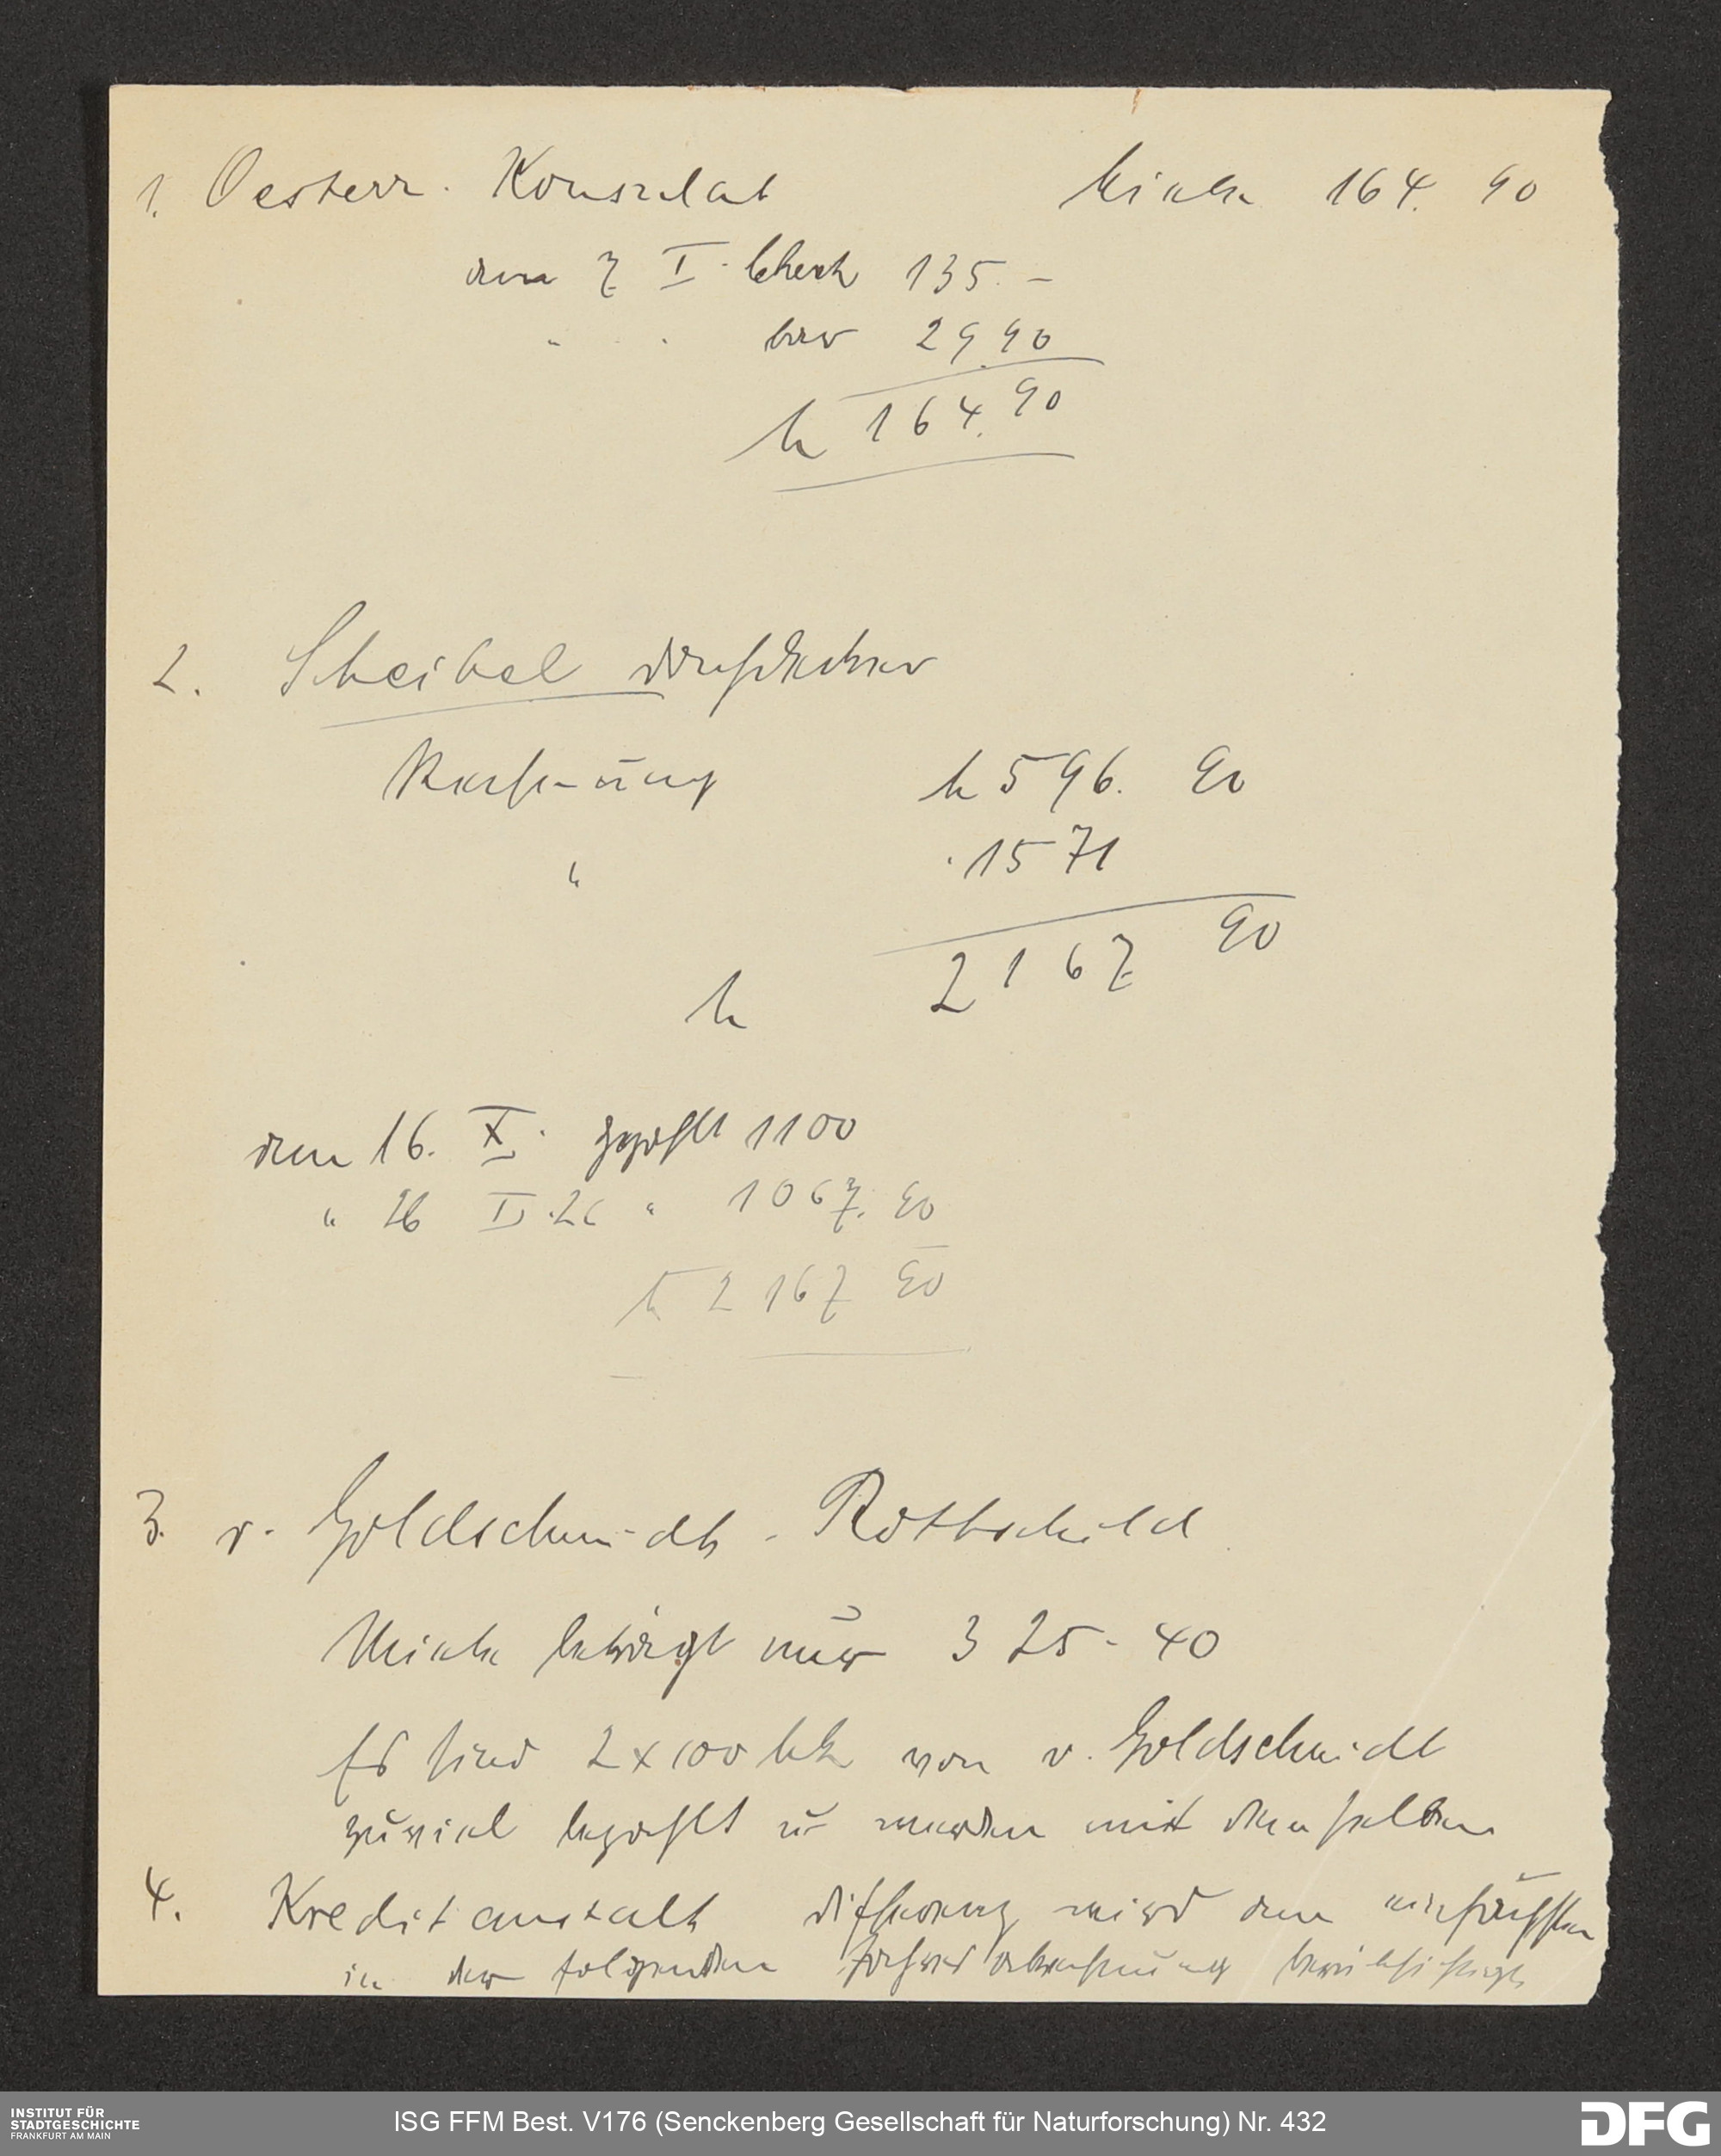 1. Oesterr. Konsulat Miete 164. 90
am 7 I. Check 135. –
" " bar 29.90
M 164.90
2. Scheibel Dachdecker
Rechnung M 596. 90
" " 1571
2167 90
M
am 16. X. gezahlt 1100
" 26 I. 26 " 1067. 90
M 2167 90
3. v. Goldschmidt-Rothschild
Miete beträgt nur 325.40
Es sind 2x100 Mk von v. Goldschmidt
zuviel bezahlt u. werden mit demselben
4. Kreditanstalt Differenz wird am einfachsten
in der folgenden Jahresabrechnung berücksichtigt
INSTITUT FÜR
STADTGESCHICHTE
FRANKFURT AM MAIN
ISG FFM Best. V176 (Senckenberg Gesellschaft für Naturforschung) Nr. 432
DFG